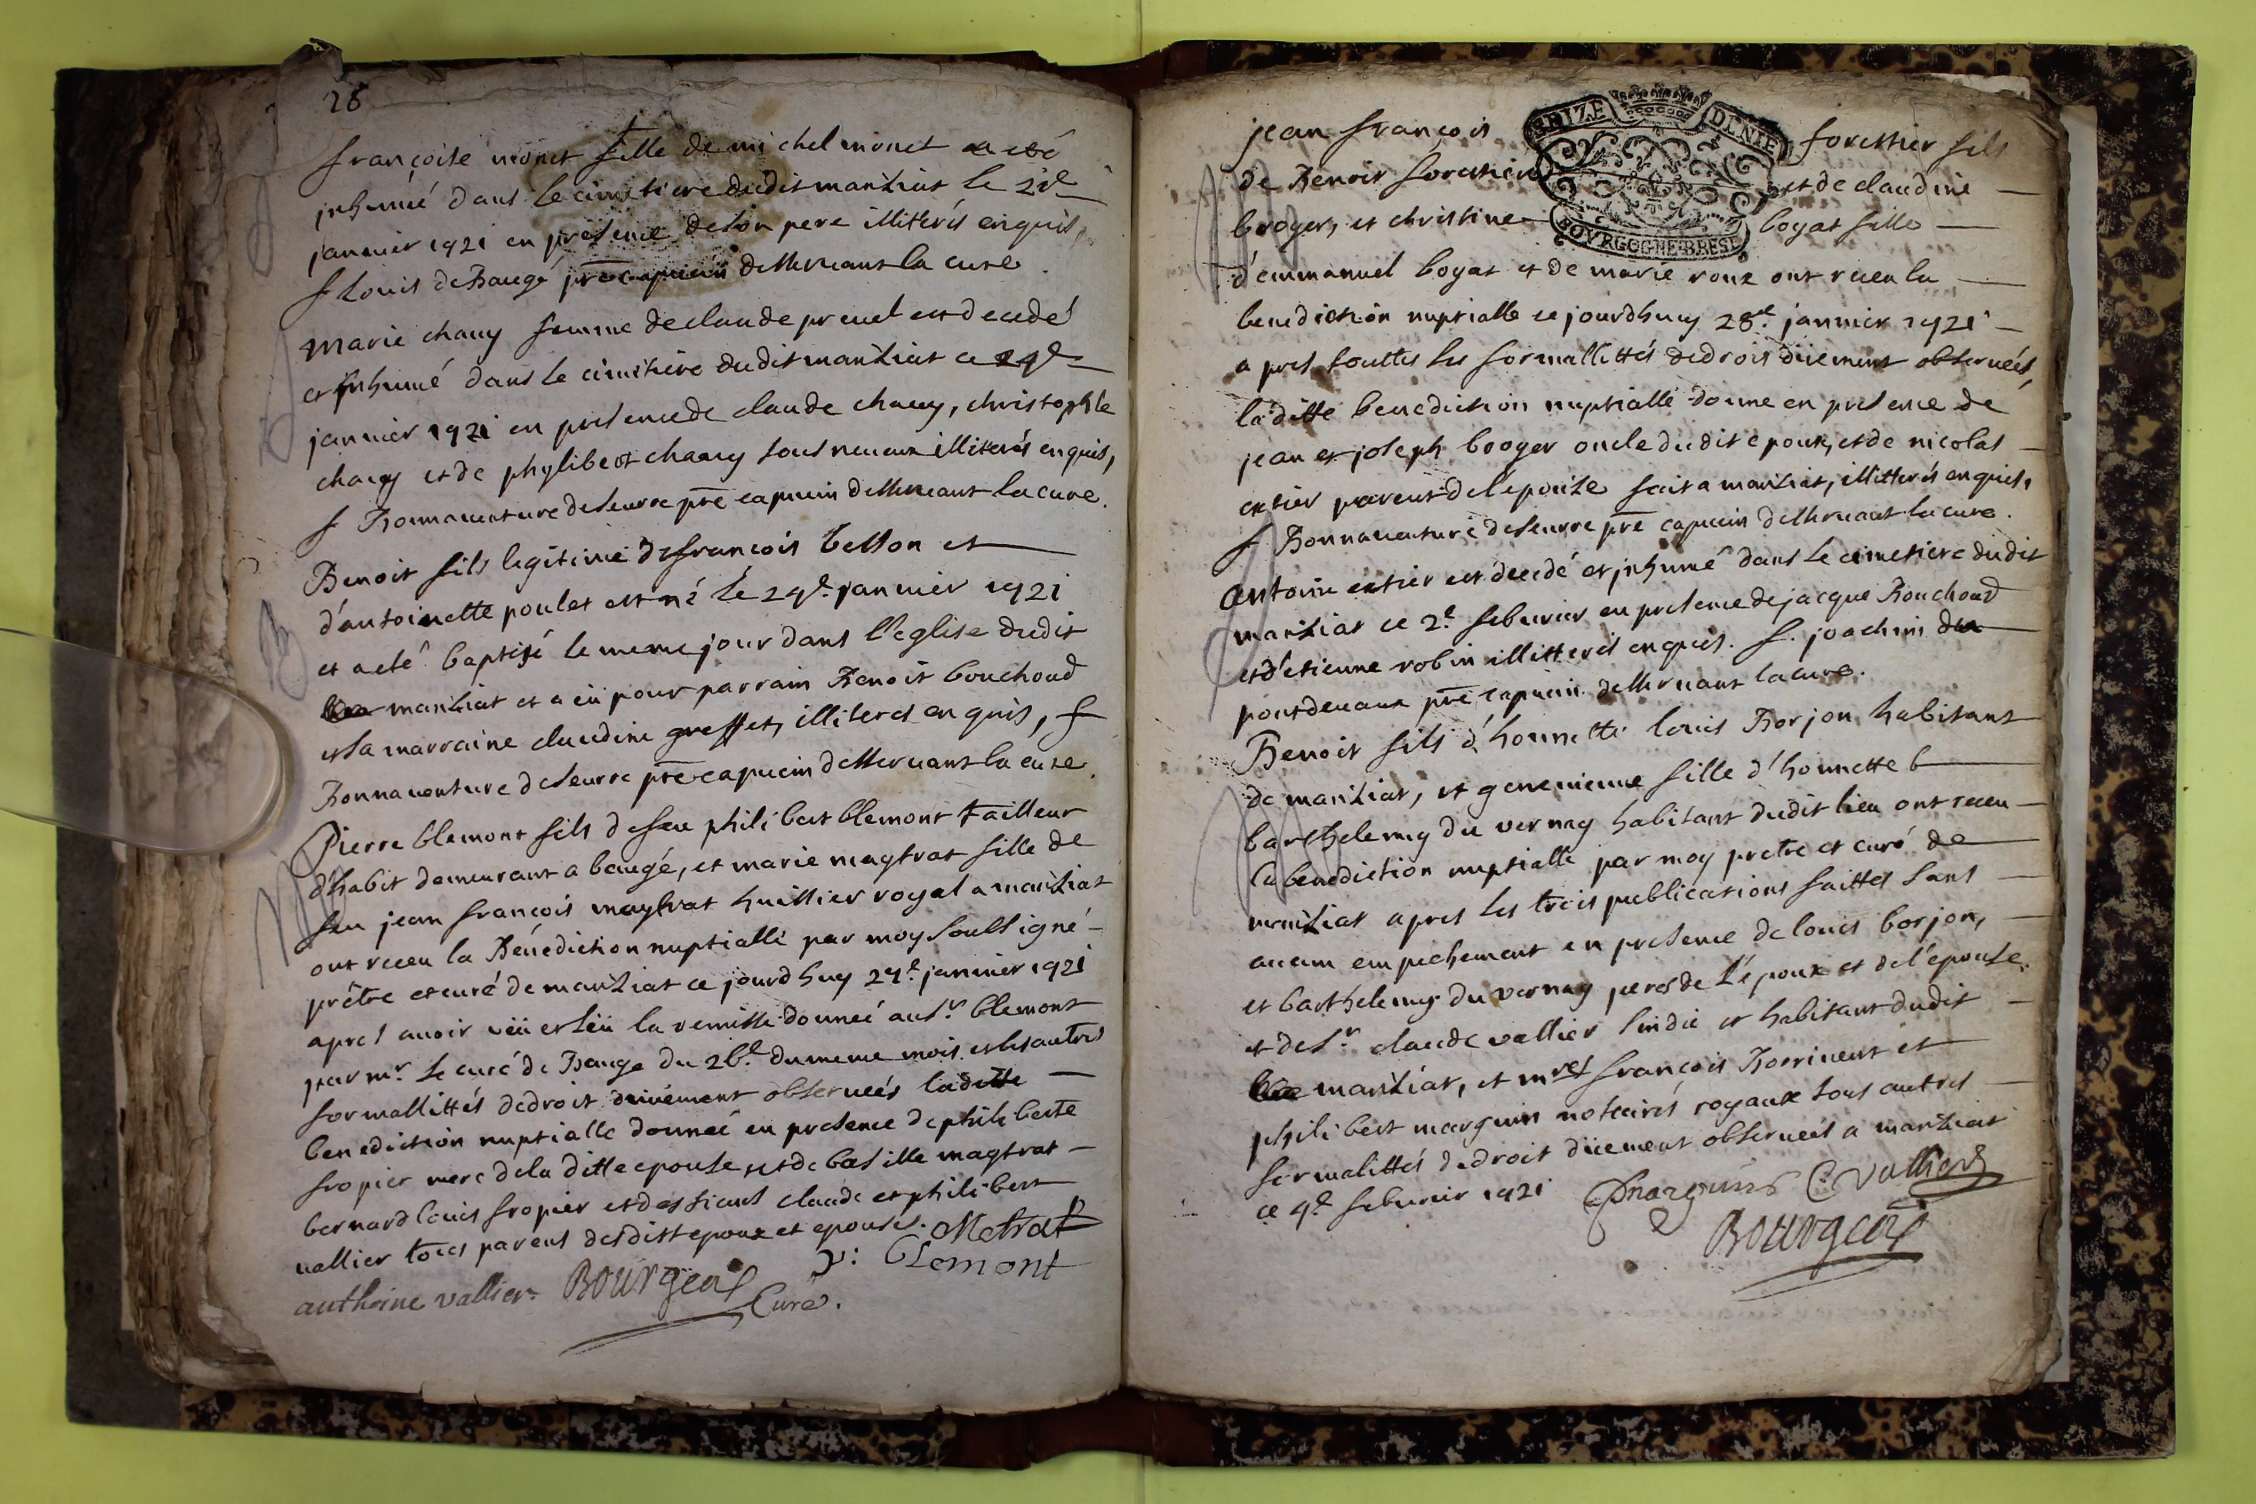 28
françoise monet fille de michel monet a eté
inhumé dans le cimetiere dudit manziat le
janvier 1721 en presence de son pere illiterés enquis,
f Louis de Baugé prê capucin desservant la cure
marie chavy femme de claude prevel est decedé
et inhumé dans le cimetiere dudit manziat ce
janvier 1721 en presence de claude chavy, christophle
chavy et de phylibert chavy tous neveux illiterés enquis,
f Bonnaventure de seurre prê capucin desservant la cure.
Benoit fils legitime de françois besson et
d'antoinette poulet est né le 24e. janvier 1721
et a eté baptisé le meme jour dans l'eglise dudit
manziat et a eü pour parrain Benoit bouchoud
et la marraine claudine greffet, illiterés enquis, f
Bonnaventure de seurre prê capucin desservant la cure.
Pierre blemont fils de feu philibert blemont tailleur
d'habit demeurant a baugé, et marie maytrat fille de
feu jean françois maytrat huissier royal a manziat
ont receu la Bénediction nuptialle par moy soussigné
prêtre et curé de manziat ce jourdhuy 27e. janvier 1721
apres avoir vëü et lëü la remisse donnée au sr. blemont
par mr. le curé de Bauge du 26e. du meme mois et les autres
formallittés de droit düement observeés laditte
benediction nuptialle donneé en presence de philiberte
fropier mere de la ditte epouse, et de basille maytrat
bernard louis fropier et des sieurs claude et philibert
vallier tous parens desdits epoux et epouse. Metrat
p: blemont
anthoine vallier. Bourgeois
Curé.
jean françois forestier fils
de Benoit forestier et de claudine
broyer, et christine boyat fille
SEIZE DENIE
BOVRGOGNE BRESE
d'emmanuel boyat et de marie roux ont receu la
benediction nuptialle ce jourdhuy 28e. janvier 1721
apres touttes les formallittés de droit düement observeés,
la ditte benediction nuptialle donne en presence de
jean et joseph broyer oncle dudit epoux, et de nicolas
catier parent de l'epouze fait a manziat, illitterés enquis,
f Bonnaventure de seurre prê capucin desservant la cure.
antoine catier est decedé et inhumé dans le cimetiere dudit
manziat ce 2e. febvrier en presence de jacque Bouchoud
et d'etienne robin illitterés enquis. f. joachim du
pontdevaux prê capucin desservant la cure.
Benoit fils d'honnette louis Borjon habitant
de manziat, et genevienne fille d'honnette b
barthelemy du vernay habitant dudit lieu ont receu
la benediction nuptialle par moy pretre et curé de
manziat apres les trois publications faittes sans
aucun empechement en presence de louis borjon,
et barthelemy du vernay peres de l'époux et de l'épouse.
et de sr. claude vallier sindic et habitant dudit
manziat, et mres françois Borrivent et
philibert marguin notairés royaux tous autres
formalittés de droit düement observeés a manziat
ce 4e. febvrier 1721 Pmarguin C. Vallier
Bourgeois